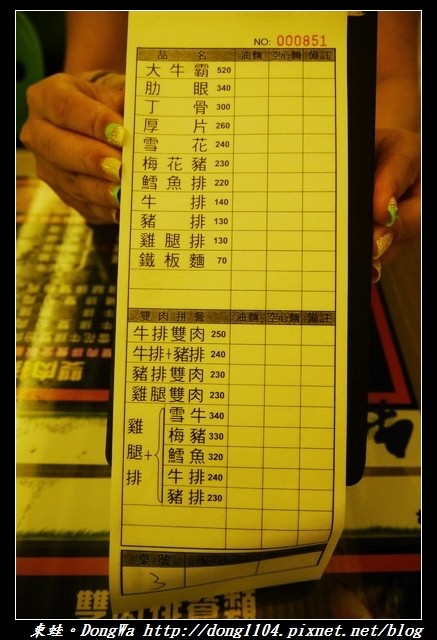 NO: 000851
品名 油麵 空心麵 備註
大牛霸 520
肋眼 340
丁骨 300
厚片 260
雪花 240
梅花豬 230
鱈魚排 220
牛排 140
豬排 130
雞腿排 130
鐵板麵 70
雙肉拼餐 油麵 空心麵 備註
牛排雙肉 250
牛排+豬排 240
豬排雙肉 230
雞腿雙肉 230
雞腿排+
雪牛 340
梅豬 330
鱈魚 320
牛排 240
豬排 230
桌號
3
東蛙。DongWa http://dong1104.pixnet.net/blog